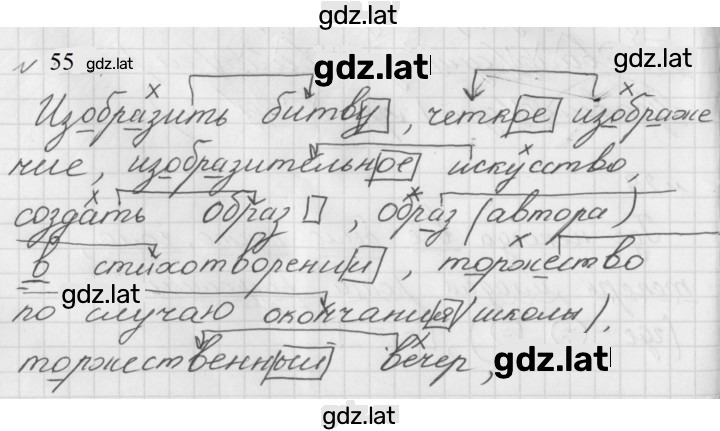 gdz.lat
№ 55 gdz.lat gdz.lat gdz.lat
Изобразить битву, четкое изображе
ние, изобразительное искусство,
создать образ, образ (автора)
в стихотворении, торжество
gdz.lat
по случаю окончания (школы),
торжественный вечер, gdz.lat
gdz.lat